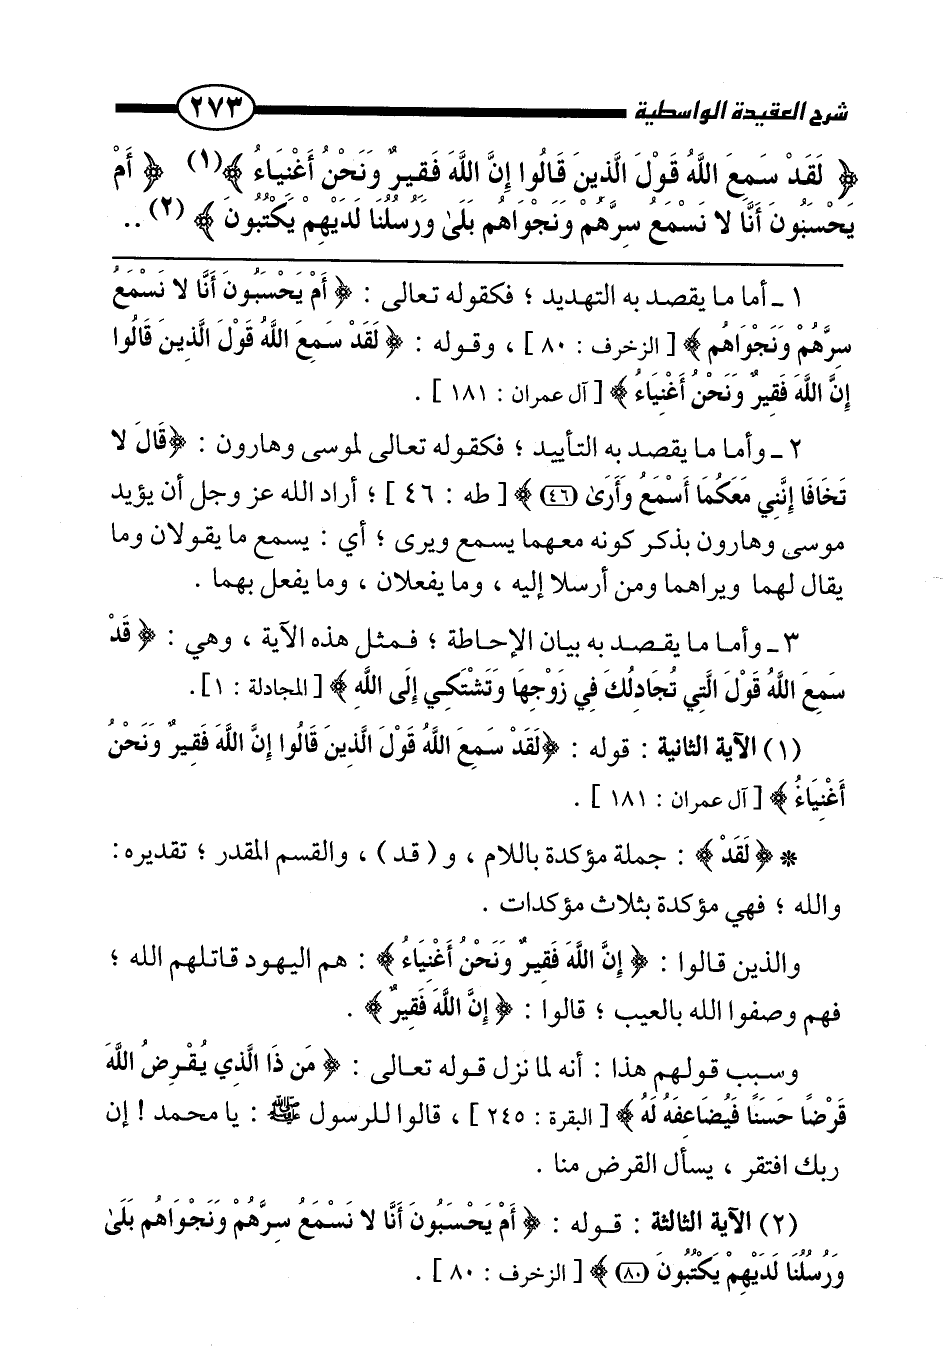 شرح العقيدة الواسطية ٢٧٣
﴿ لَقَدْ سَمِعَ اللَّهُ قَوْلَ الَّذِينَ قَالُوا إِنَّ اللَّهَ فَقِيرٌ وَنَحْنُ أَغْنِيَاءُ ﴾(١) ﴿ أَمْ
يَحْسَبُونَ أَنَّا لا نَسْمَعُ سِرَّهُمْ وَنَجْوَاهُم بَلَىٰ وَرُسُلُنَا لَدَيْهِمْ يَكْتُبُونَ ﴾ (٢) ..
١ ـ أما ما يقصد به التهديد ؛ فكقوله تعالى : ﴿ أَمْ يَحْسَبُونَ أَنَّا لا نَسْمَعُ
سِرَّهُمْ وَنَجْوَاهُم ﴾ [ الزخرف : ٨٠ ] ، وقوله : ﴿ لَقَدْ سَمِعَ اللَّهُ قَوْلَ الَّذِينَ قَالُوا
إِنَّ اللَّهَ فَقِيرٌ وَنَحْنُ أَغْنِيَاءُ ﴾ [ آل عمران : ١٨١ ] .
٢ ـ وأما ما يقصد به التأييد ؛ فكقوله تعالى لموسى وهارون : ﴿ قَالَ لا
تَخَافَا إِنَّنِي مَعَكُمَا أَسْمَعُ وَأَرَىٰ (٤٦) ﴾ [ طه : ٤٦ ] ؛ أراد الله عز وجل أن يؤيد
موسى وهارون بذكر كونه معهما يسمع ويرى ؛ أي : يسمع ما يقولان وما
يقال لهما ويراهما ومن أرسلا إليه ، وما يفعلان ، وما يفعل بهما .
٣ ـ وأما ما يقصد به بيان الإحاطة ؛ فمثل هذه الآية ، وهي : ﴿ قَدْ
سَمِعَ اللَّهُ قَوْلَ الَّتِي تُجَادِلُكَ فِي زَوْجِهَا وَتَشْتَكِي إِلَى اللَّهِ ﴾ [ المجادلة : ١].
(١) الآية الثانية : قوله : ﴿لَقَدْ سَمِعَ اللَّهُ قَوْلَ الَّذِينَ قَالُوا إِنَّ اللَّهَ فَقِيرٌ وَنَحْنُ
أَغْنِيَاءُ ﴾ [ آل عمران : ١٨١ ] .
* ﴿ لَقَدْ ﴾ : جملة مؤكدة باللام ، و ( قد ) ، والقسم المقدر ؛ تقديره:
والله ؛ فهي مؤكدة بثلاث مؤكدات .
والذين قالوا : ﴿ إِنَّ اللَّهَ فَقِيرٌ وَنَحْنُ أَغْنِيَاءُ ﴾ : هم اليهود قاتلهم الله ؛
فهم وصفوا الله بالعيب ؛ قالوا : ﴿ إِنَّ اللَّهَ فَقِيرٌ ﴾ .
وسبب قولهم هذا : أنه لما نزل قوله تعالى : ﴿ مَن ذَا الَّذِي يُقْرِضُ اللَّهَ
قَرْضًا حَسَنًا فَيُضَاعِفَهُ لَهُ ﴾ [ البقرة : ٢٤٥ ] ، قالوا للرسول ﷺ : يا محمد ! إن
ربك افتقر ، يسأل القرض منا .
(٢) الآية الثالثة : قوله : ﴿ أَمْ يَحْسَبُونَ أَنَّا لا نَسْمَعُ سِرَّهُمْ وَنَجْوَاهُم بَلَىٰ
وَرُسُلُنَا لَدَيْهِمْ يَكْتُبُونَ (٨٠) ﴾ [ الزخرف : ٨٠ ] .